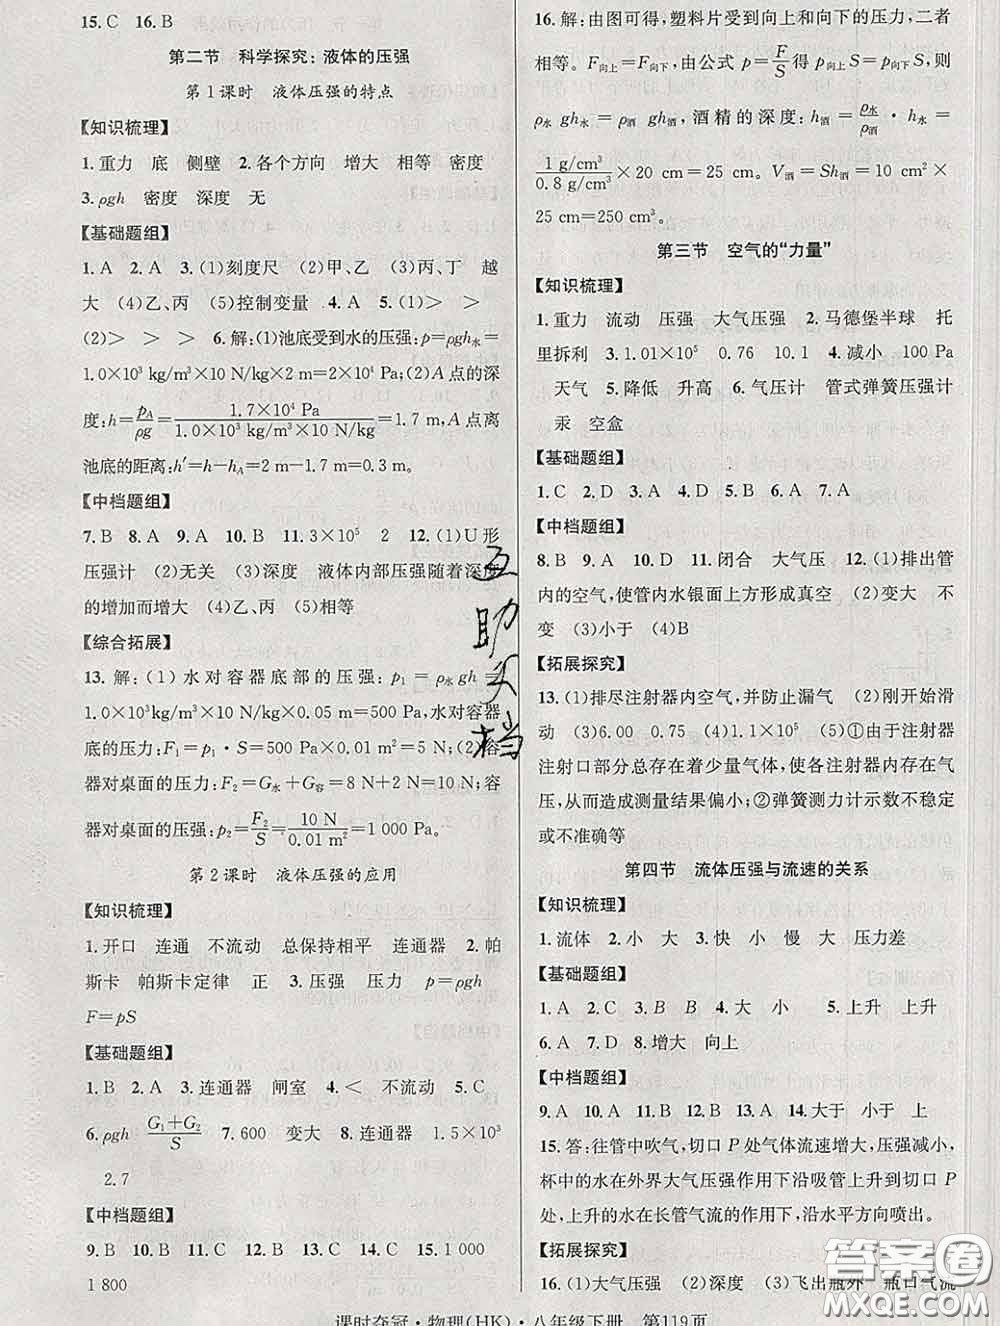 15. C  16. B
第二节  科学探究:液体的压强
第1课时  液体压强的特点
【知识梳理】
1. 重力  底  侧壁  2. 各个方向  增大  相等  密度
3. ρgh  密度  深度  无
【基础题组】
1. A  2. A  3. (1)刻度尺  (2)甲、乙  (3)丙、丁  越
大  (4)乙、丙  (5)控制变量  4. A  5. (1)>  >
(2)>  >  >  6. 解:(1)池底受到水的压强:p=ρgh水=
1.0×10³ kg/m³×10 N/kg×2 m=2×10⁴ Pa;(2)A点的深
度:h=pA/ρg=1.7×10⁴ Pa/(1.0×10³ kg/m³×10 N/kg)=1.7 m,A点离
池底的距离:h′=h-hA=2 m-1.7 m=0.3 m。
【中档题组】
7. B  8. A  9. A  10. B  11. 3×10⁵  2  12. (1)U形
压强计  (2)无关  (3)深度  液体内部压强随着深度
的增加而增大  (4)乙、丙  (5)相等
【综合拓展】
13. 解:(1)水对容器底部的压强:p₁=ρ水gh=
1.0×10³ kg/m³×10 N/kg×0.05 m=500 Pa,水对容器
底的压力:F₁=p₁·S=500 Pa×0.01 m²=5 N;(2)容
器对桌面的压力:F₂=G水+G容=8 N+2 N=10 N;容
器对桌面的压强:p₂=F₂/S=10 N/0.01 m²=1 000 Pa。
第2课时  液体压强的应用
【知识梳理】
1. 开口  连通  不流动  总保持相平  连通器  2. 帕
斯卡  帕斯卡定律  正  3. 压强  压力  p=ρgh
F=pS
【基础题组】
1. B  2. A  3. 连通器  闸室  4. <  不流动  5. C
6. ρgh  (G₁+G₂)/S  7. 600  变大  8. 连通器  1.5×10³
2.7
【中档题组】
9. B  10. B  11. C  12. C  13. C  14. C  15. 1 000
1 800
16. 解:由图可得,塑料片受到向上和向下的压力,二者
相等。F向上=F向下,由公式 p=F/S 得 p向上S=p向下S,则
ρ水gh水=ρ酒gh酒,酒精的深度:h酒=ρ水/ρ酒·h水=
(1 g/cm³)/(0.8 g/cm³)×20 cm=25 cm。V酒=Sh酒=10 cm²×
25 cm=250 cm³。
第三节  空气的“力量”
【知识梳理】
1. 重力  流动  压强  大气压强  2. 马德堡半球  托
里拆利  3. 1.01×10⁵  0.76  10.1  4. 减小  100 Pa
天气  5. 降低  升高  6. 气压计  管式弹簧压强计
汞  空盒
【基础题组】
1. C  2. D  3. A  4. D  5. B  6. A  7. A
【中档题组】
8. B  9. A  10. D  11. 闭合  大气压  12. (1)排出管
内的空气,使管内水银面上方形成真空  (2)变大  不
变  (3)小于  (4)B
【拓展探究】
13. (1)排尽注射器内空气,并防止漏气  (2)刚开始滑
动  (3)6.00  0.75  (4)1.2×10⁵  (5)①由于注射器
注射口部分总存在着少量气体,使各注射器内存在气
压,从而造成测量结果偏小;②弹簧测力计示数不稳定
或不准确等
第四节  流体压强与流速的关系
【知识梳理】
1. 流体  2. 小  大  3. 快  小  慢  大  压力差
【基础题组】
1. A  2. C  3. B  B  4. 大  小  5. 上升  上升
6. A  7. D  8. 增大  向上
【中档题组】
9. A  10. A  11. B  12. A  13. A  14. 大于  小于  上
15. 答:往管中吹气,切口P处气体流速增大,压强减小,
杯中的水在外界大气压强作用下沿吸管上升到切口P
处,上升的水在长管气流的作用下,沿水平方向喷出。
【拓展探究】
16. (1)大气压强  (2)深度  (3)飞出瓶外  瓶口气流
课时夺冠·物理(HK)·八年级下册  第119页
互
助
文
档
答案圈
MXQE.COM